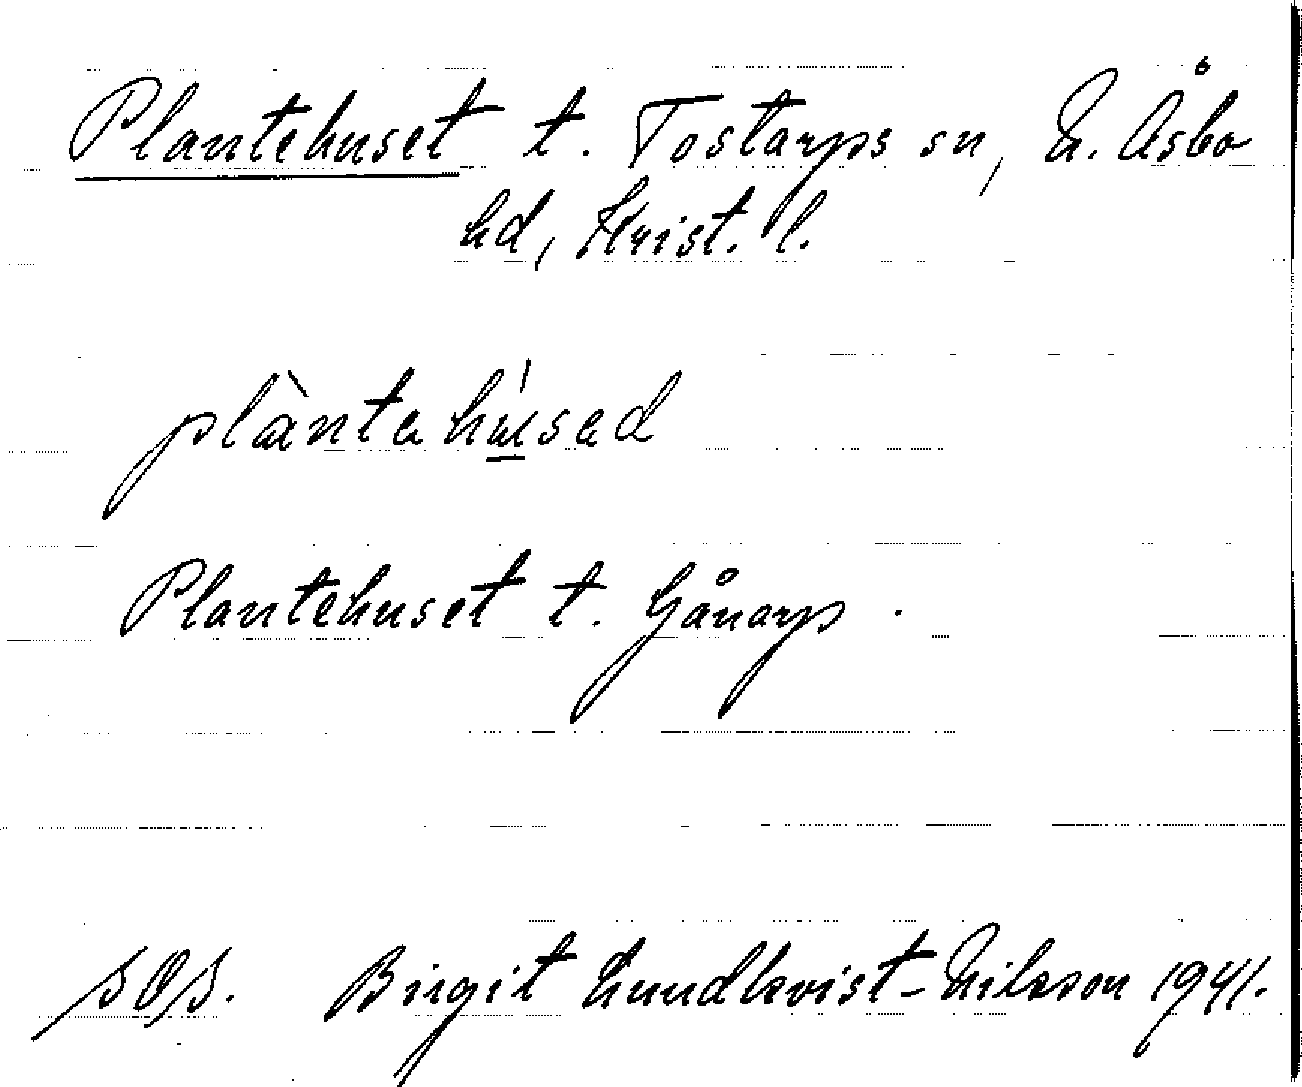 Plantehuset t. Tostarps sn, N. Åsbo
hd, Krist. l.
plàntehúsed
Plantehuset t. Gånarp.
SOS. Birgit Lundkvist-Nilsson 1941.